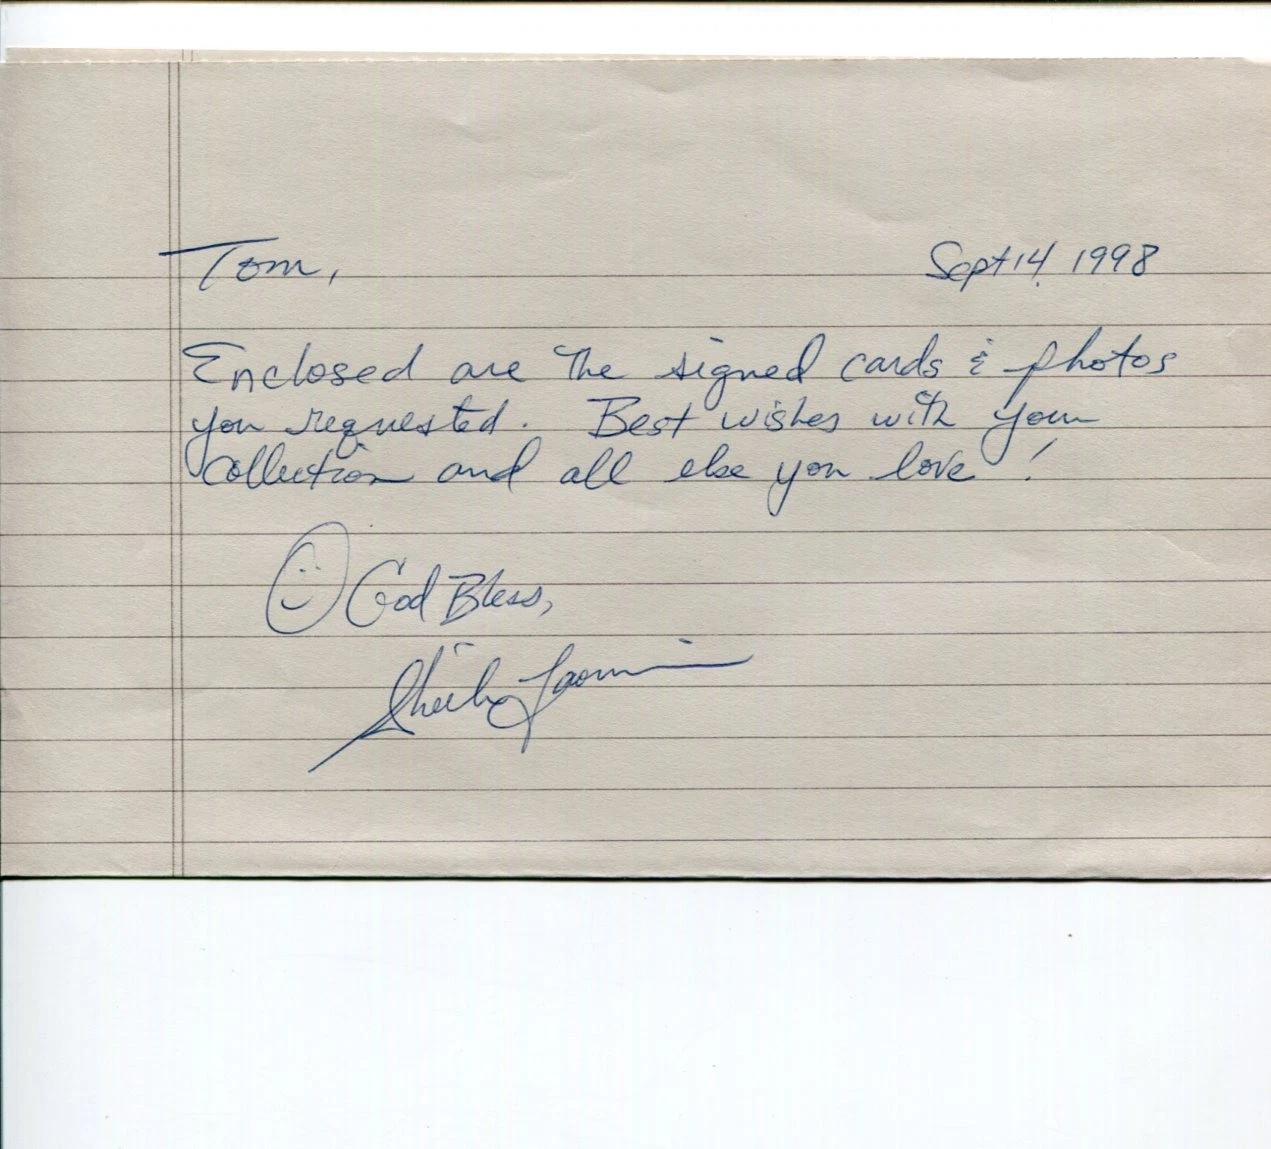 Tom,
Sept 14, 1998
Enclosed are the signed cards & photos
you requested. Best wishes with your
collection and all else you love!
God Bless,
Sheila